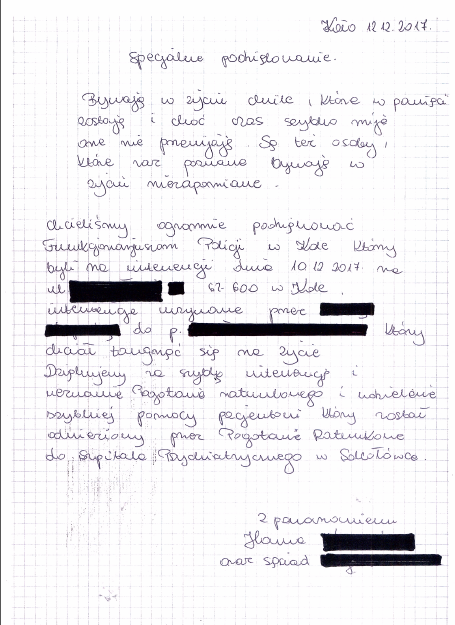 Koło 12.12.2017.
Specjalne podziękowanie.
Bywają w życiu chwile, które w pamięci
zostają i choć czas szybko mija
one nie przemijają. Są też osoby,
które raz poznane bywają w
życiu niezapomniane.
Chcieliśmy ogromnie podziękować
Funkcjonariuszom Policji w Kole którzy
byli na interwencji dnia 10.12.2017. na
ul 62-600 w Kole.
interwencje wzywane przez
do p. który
chciał targnąć się na życie
Dziękujemy za szybką interwencję i
wezwanie Pogotowia ratunkowego i udzielenie
szybkiej pomocy pacjentowi który został
odwieziony przez Pogotowie Ratunkowe
do Szpitala Psychiatrycznego w Sokołówce.
Z poważaniem
Hanna
oraz sąsiad